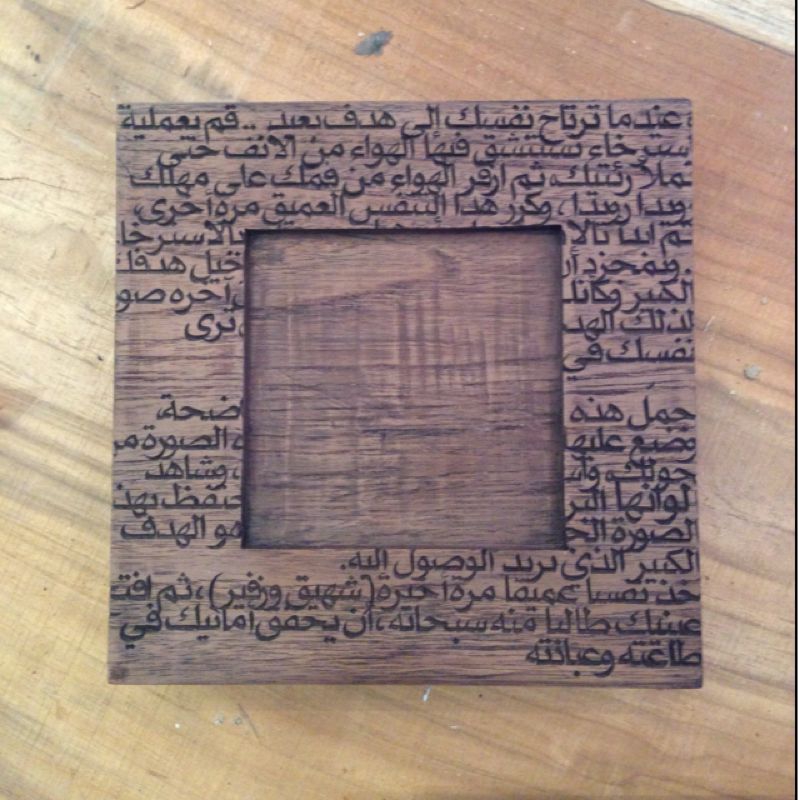 عندما ترتاح نفسك إلى هدف بعيد .. قم بعملية
استرخاء تستنشق فيها الهواء من الأنف حتى
تملأ رئتيك ثم ازفر الهواء من فمك على مهلك
رويدا رويدا ، وكرر هذا التنفس العميق مرة أخرى
ثم ابدأ بالا بالاسترخا
وبمجرد أن تخيل هدفك
الكبير وكأنك آخره صو
لذلك الهد ترى
نفسك في
جمل هذه اضحة،
وضع عليها ه الصورة من
حولك وأس وشاهد
ألوانها البر حتفظ بهذ
الصورة الج هو الهدف
الكبير الذي تريد الوصول إليه.
خذ نفسا عميقا مرة أخيرة (شهيق وزفير) ، ثم افت
عينيك طالبا منه سبحانه ، أن يحقق أمانيك في
طاعته وعبادته